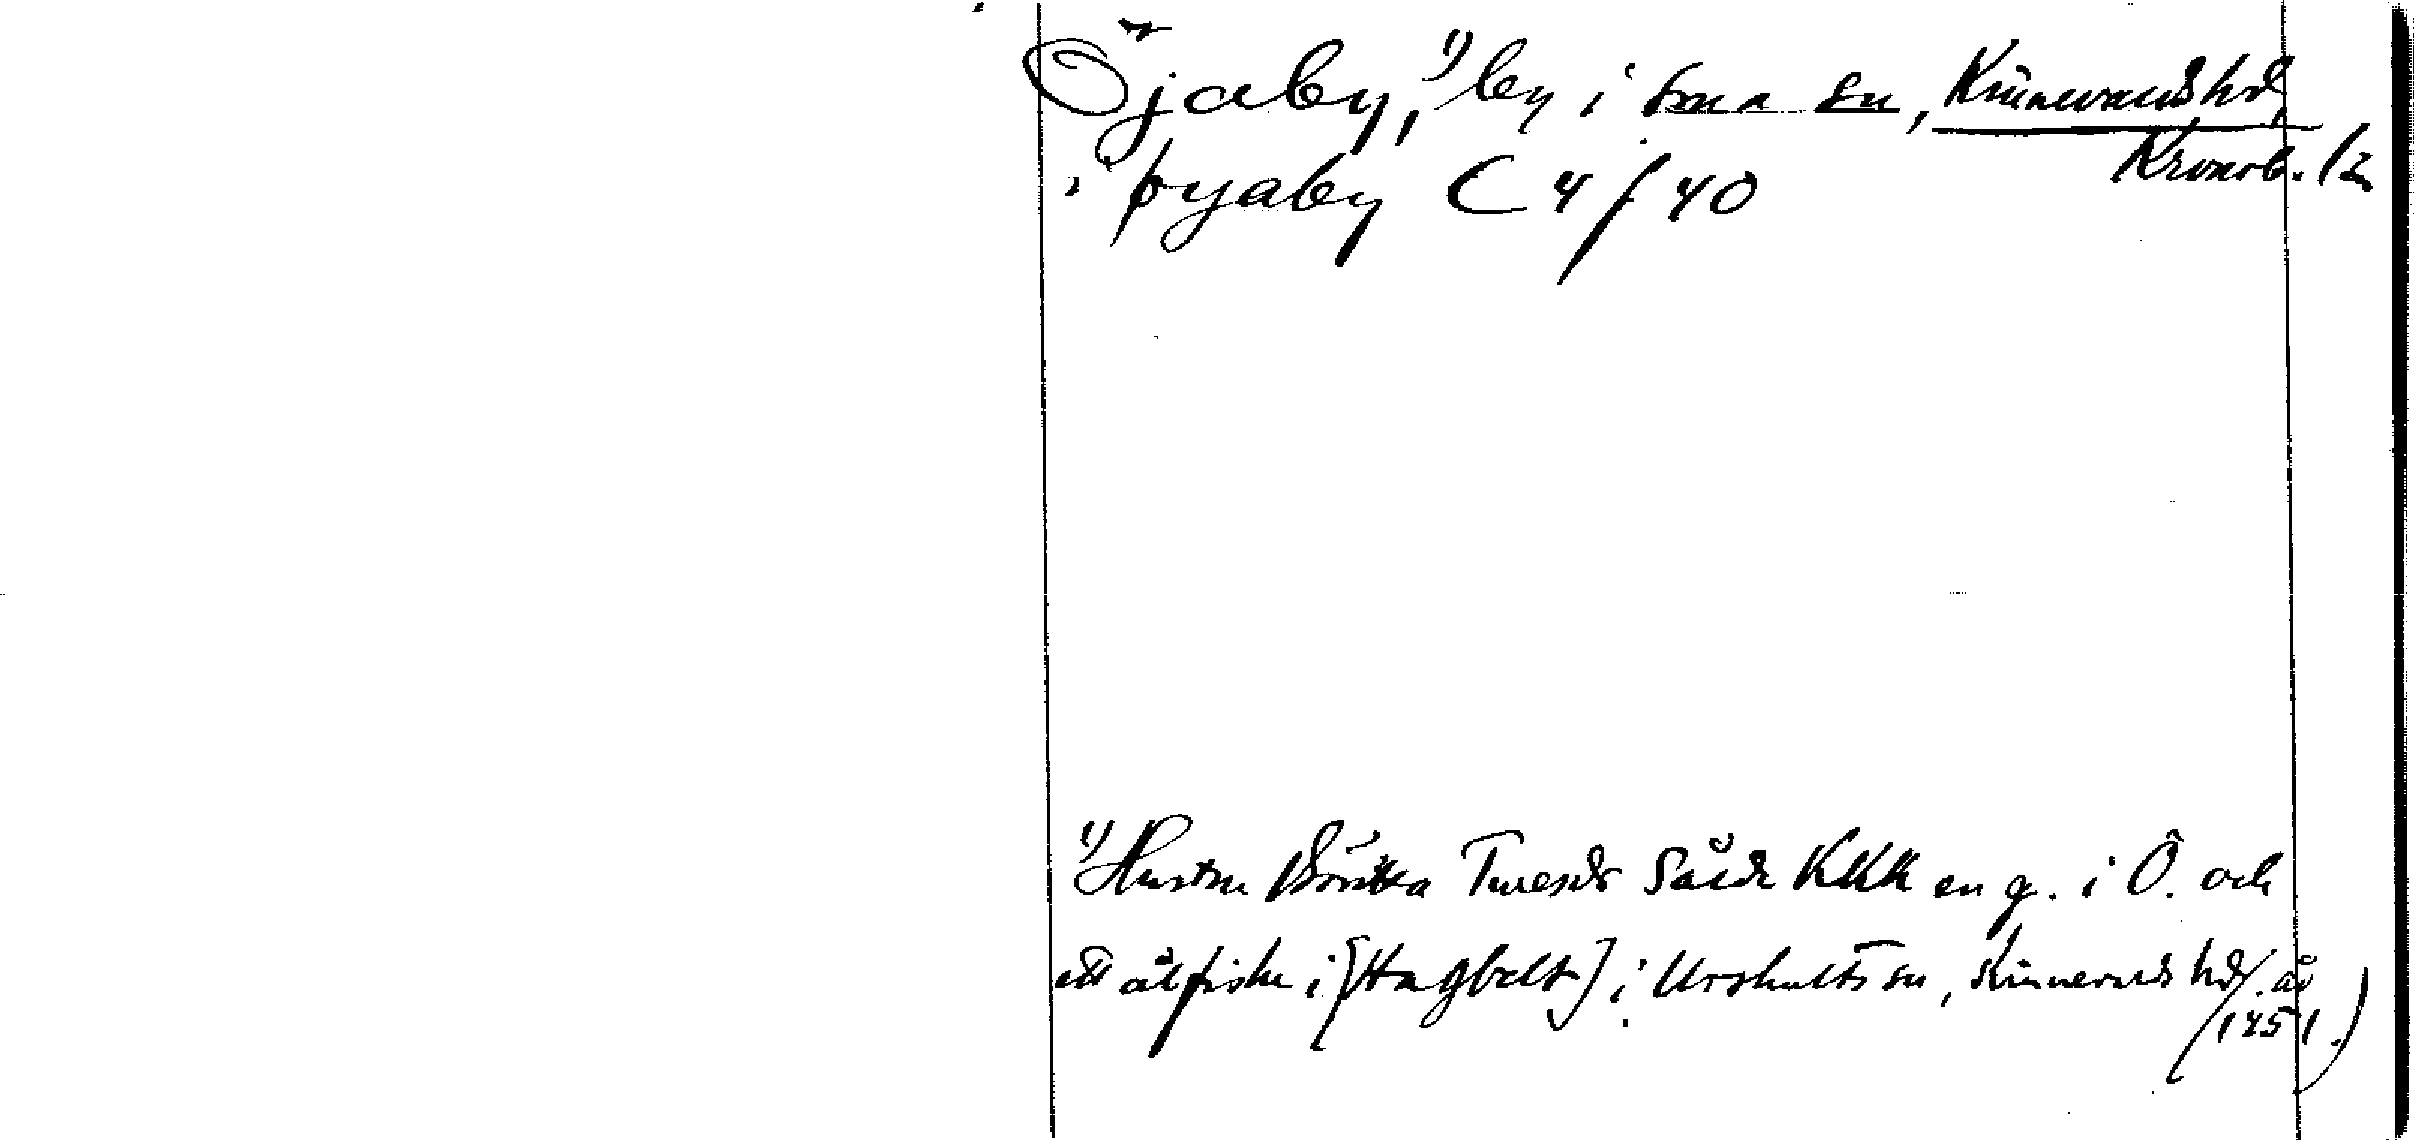 Öjaby,¹⁾ by i sma sn, Kinnevalds hd,
Kronob. l.
i þyaby C 4 f 40
¹⁾ Hustru Turesdr KKK en g. i Ö. och
ett ålfiske i [Hagbelt] i Urshults sn, Kinnevalds hd. år
1451.)